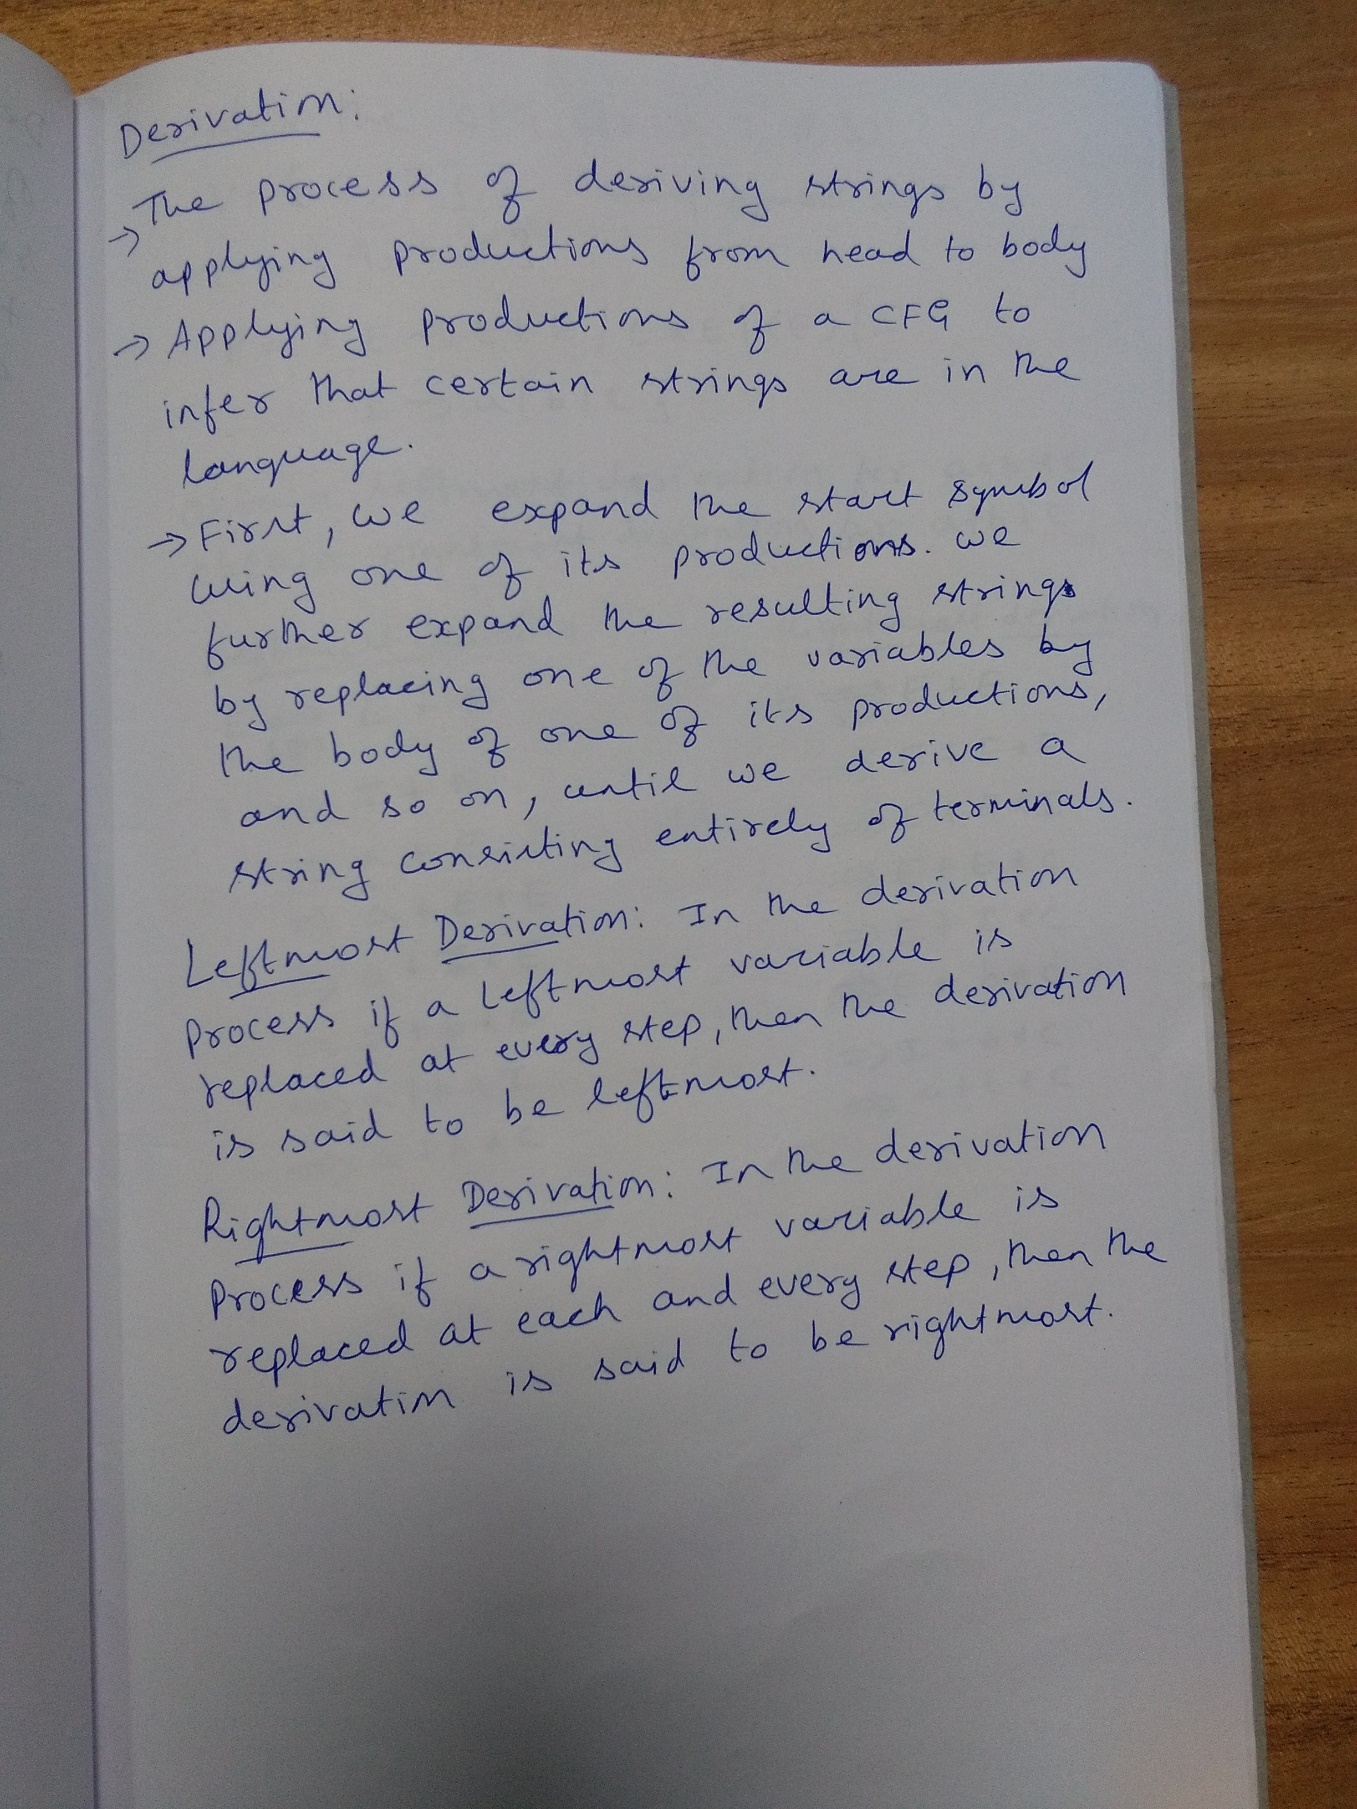 Derivation:
→ The process of deriving strings by
applying productions from head to body
→ Applying productions of a CFG to
infer that certain strings are in the
language.
→ First, we expand the start symbol
using one of its productions. we
further expand the resulting strings
by replacing one of the variables by
the body of one of its productions,
and so on, until we derive a
string consisting entirely of terminals.
Leftmost Derivation: In the derivation
process if a leftmost variable is
replaced at every step, then the derivation
is said to be leftmost.
Rightmost Derivation: In the derivation
process if a rightmost variable is
replaced at each and every step, then the
derivation is said to be rightmost.